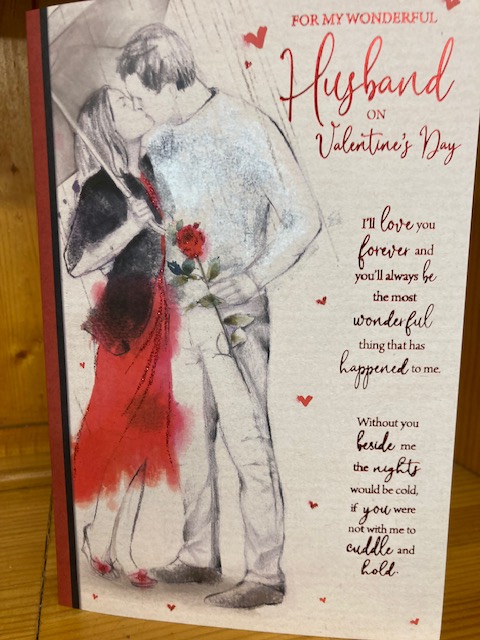 FOR MY WONDERFUL
Husband
ON
Valentine's Day
I'll love you
forever and
you'll always be
the most
wonderful
thing that has
happened to me.
Without you
beside me
the nights
would be cold,
if you were
not with me to
cuddle and
hold.